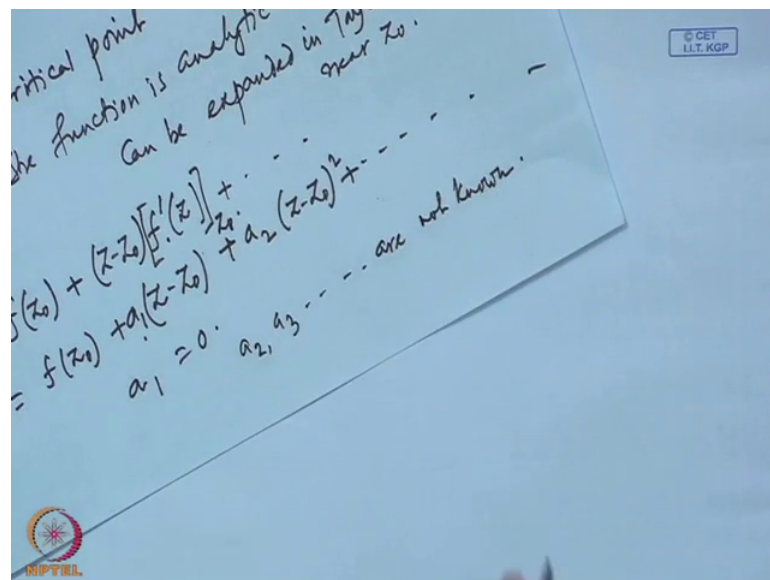 critical point
the function is analytic
can be expanded in Tay
near z₀.
f(z₀) + (z-z₀)[f'(z)]z₀ + . . .
= f(z₀) + a₁(z-z₀) + a₂(z-z₀)² + - - - . . . -
a₁ = 0. a₂, a₃ - - - . are not known.
© CET
I.I.T. KGP
NPTEL